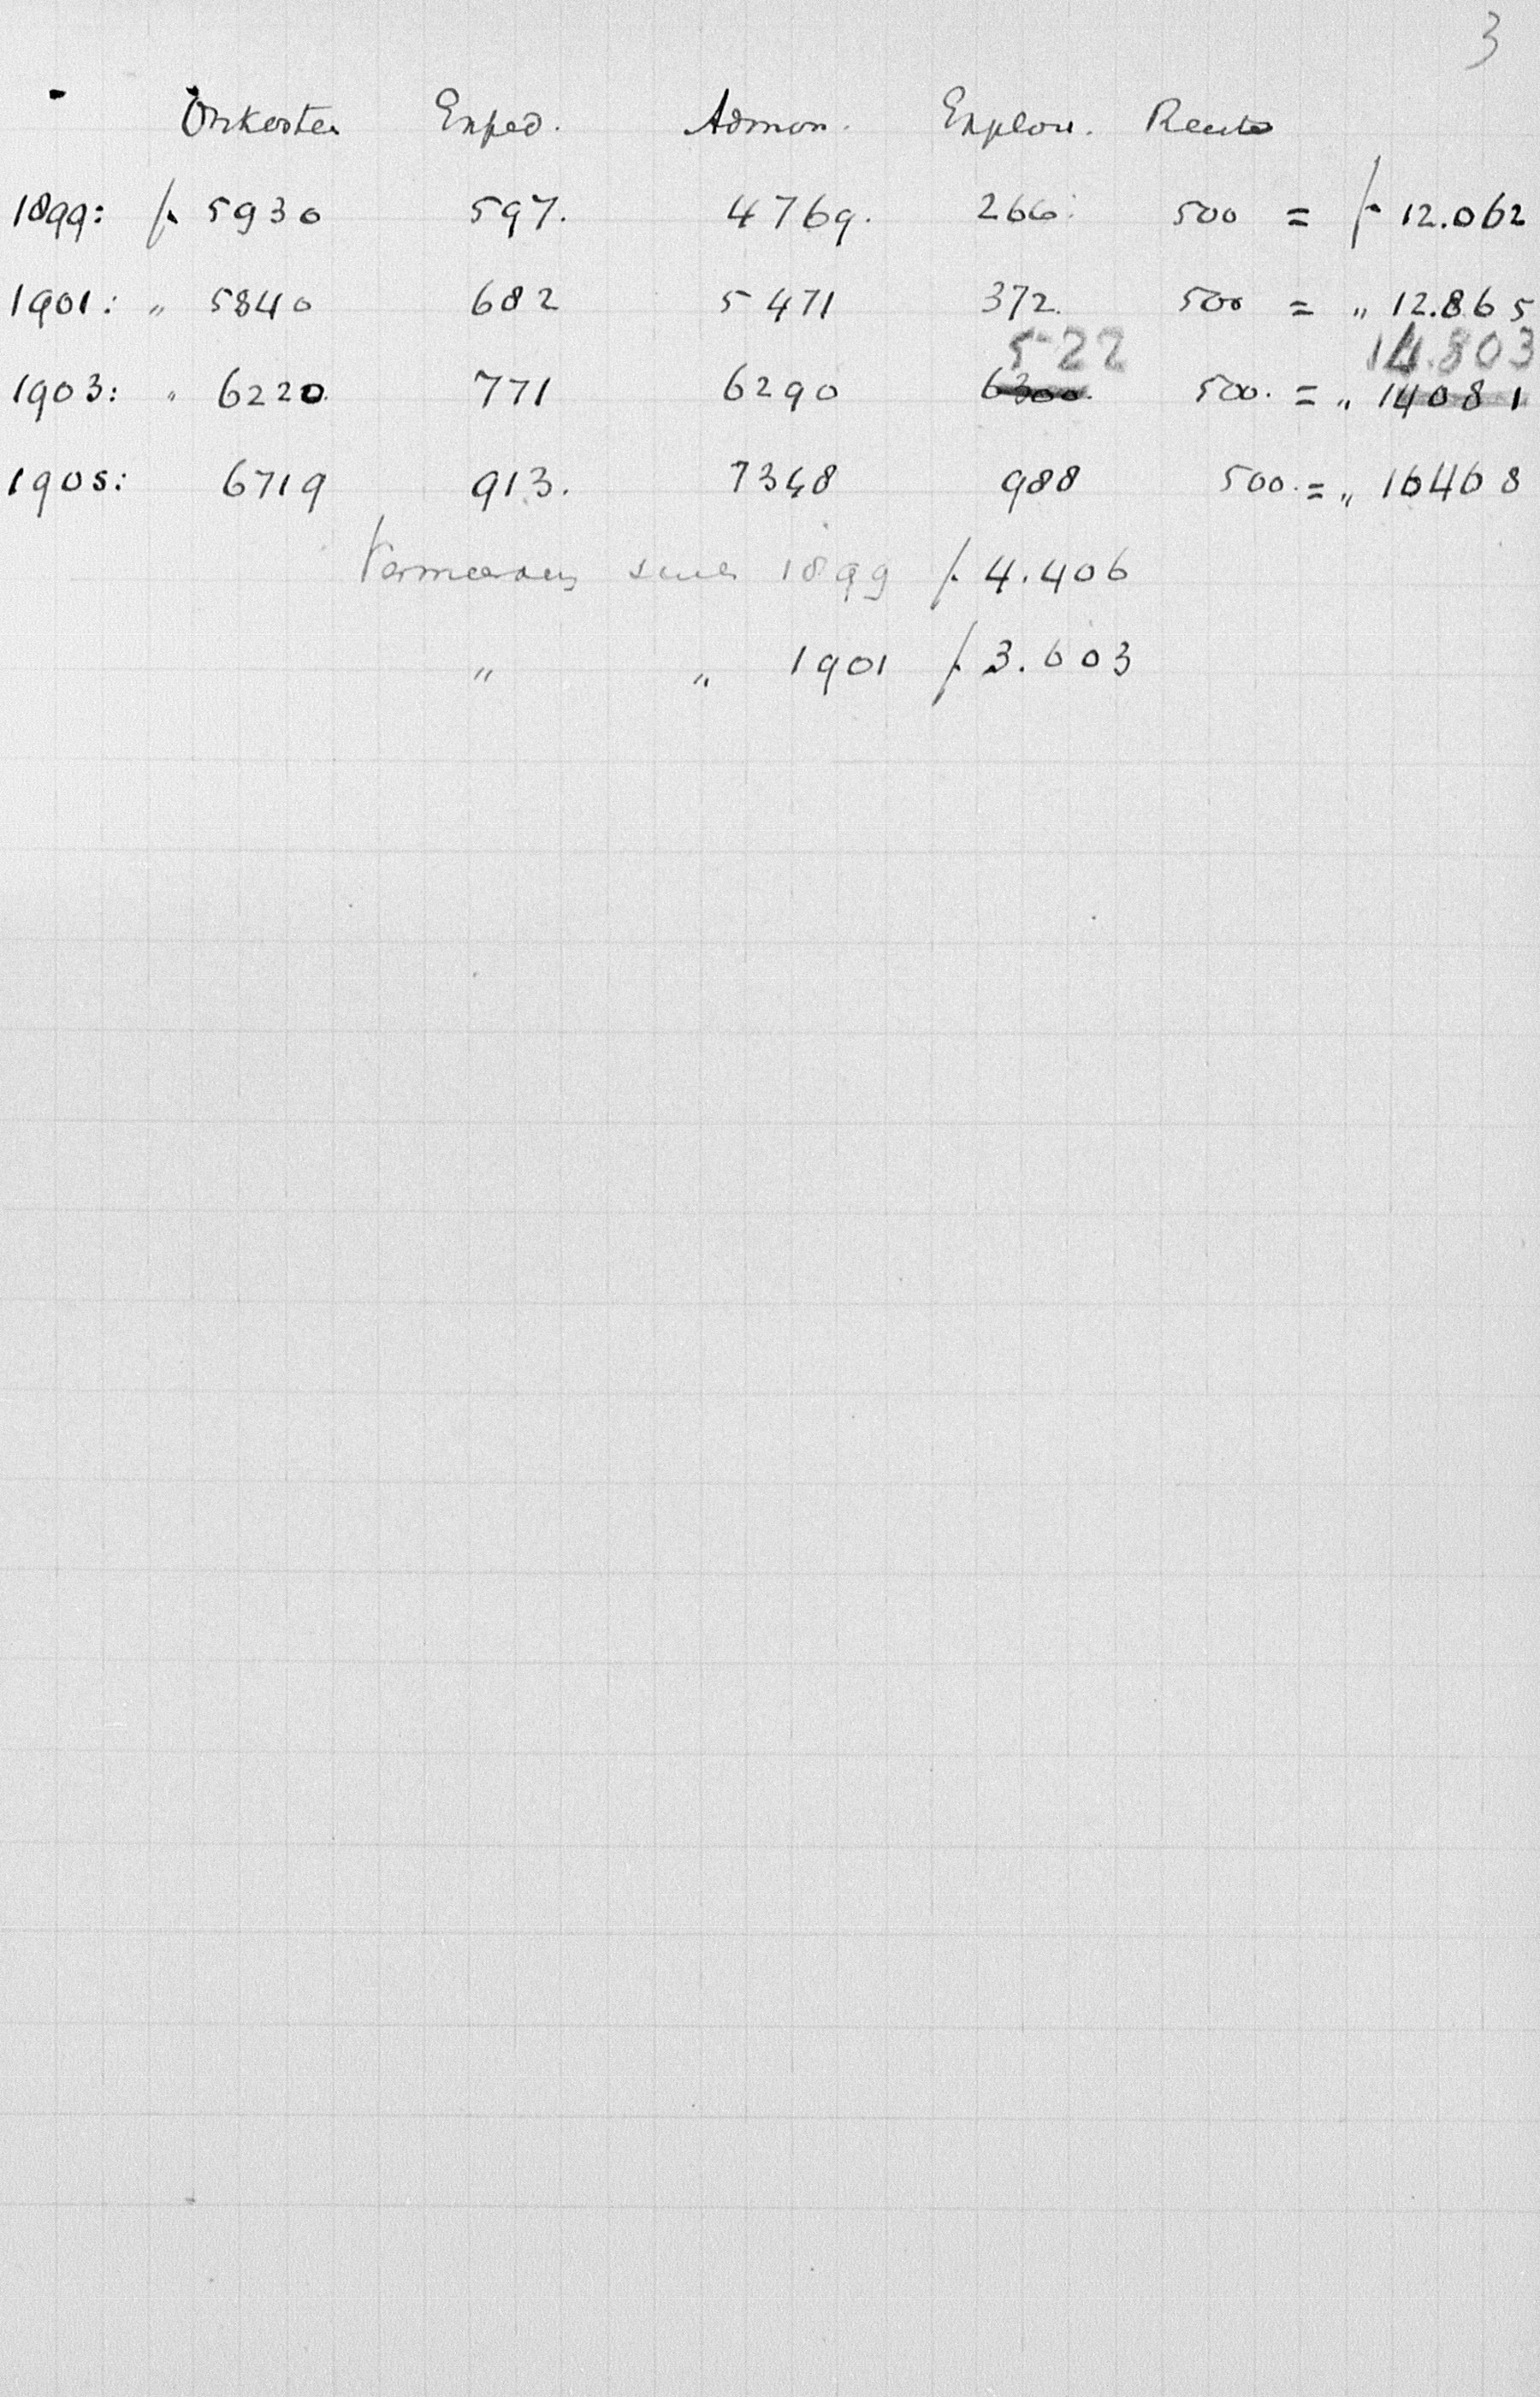 3
Onkosten Exped. Admon. Explou. Rente
1899: f. 5930 597. 4769. 266. 500 = f 12.062
1901: „ 5840 682 5471 372. 500 = „ 12.865
522 14.803
1903: „ 6220. 771 6290 6300. 500. = „ 14081
1905: 6719 913. 7348 988 500. = „ 16468
sinds 1899 f. 4.406
„ „ 1901 f. 3.603